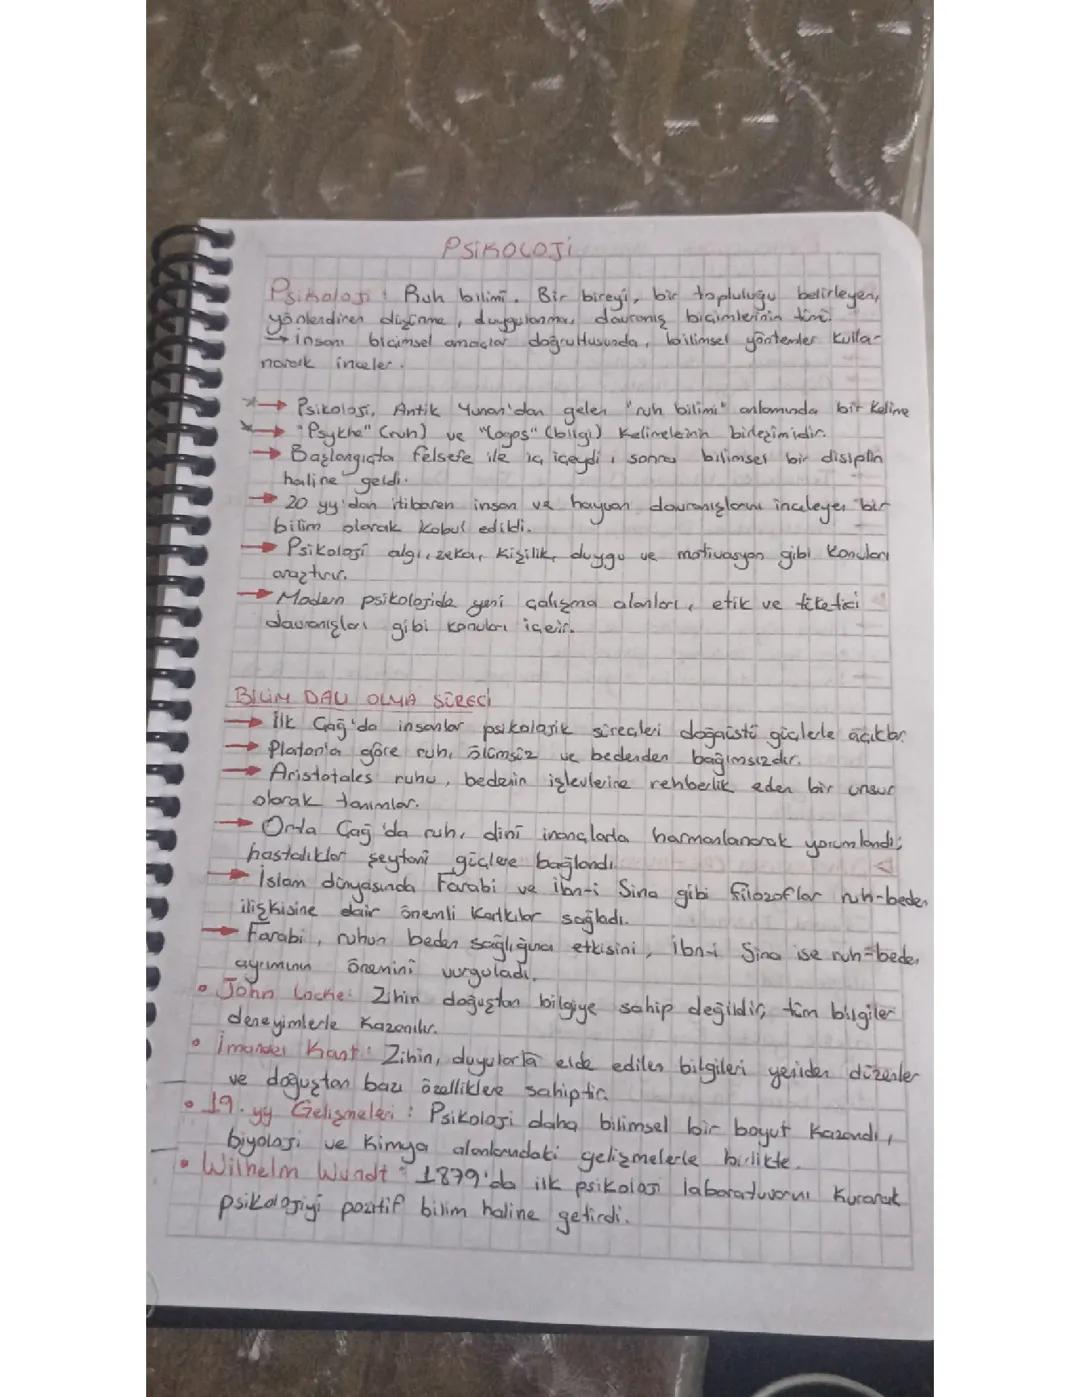 PSİKOLOJİ
Psikoloji: Ruh bilimi. Bir bireyi, bir topluluğu belirleyen,
yönlendiren düşünme, duygulanma, davranış biçimlerinin tümü.
→ insanı bilimsel amaçlar doğrultusunda, bilimsel yöntemler kulla-
narak inceler.
*→ Psikoloji, Antik Yunan'dan gelen "ruh bilimi" anlamında bir kelime
*→ "Psykhe" (ruh) ve "logos" (bilgi) kelimelerinin birleşimidir.
→ Başlangıçta felsefe ile iç içeydi, sonra bilimsel bir disiplin
haline geldi.
→ 20 yy'dan itibaren insan ve hayvan davranışlarını inceleyen bir
bilim olarak kabul edildi.
→ Psikoloji algı, zeka, kişilik, duygu ve motivasyon gibi konuları
araştırır.
→ Modern psikolojide yeni çalışma alanları, etik ve tüketici
davranışları gibi konuları içerir.
BİLİM DALI OLMA SÜRECİ
→ İlk Çağ'da insanlar psikolojik süreçleri doğaüstü güçlerle açıklar.
→ Platon'a göre ruh, ölümsüz ve bedenden bağımsızdır.
→ Aristotales ruhu, bedenin işlevlerine rehberlik eden bir unsur
olarak tanımlar.
→ Orta Çağ'da ruh, dinî inançlarla harmanlanarak yorumlandı;
hastalıklar şeytanî güçlere bağlandı.
→ İslam dünyasında Farabi ve İbn-i Sina gibi filozoflar ruh-beden
ilişkisine dair önemli katkılar sağladı.
→ Farabi, ruhun beden sağlığına etkisini, İbn-i Sina ise ruh-beden
ayrımının önemini vurguladı.
• John Locke: Zihin doğuştan bilgiye sahip değildir, tüm bilgiler
deneyimlerle kazanılır.
• İmanuel Kant: Zihin, duyularla elde edilen bilgileri yeniden düzenler
ve doğuştan bazı özelliklere sahiptir.
• 19. yy Gelişmeleri: Psikoloji daha bilimsel bir boyut kazandı,
biyoloji ve kimya alanlarındaki gelişmelerle birlikte.
• Wilhelm Wundt: 1879'da ilk psikoloji laboratuvarını kurarak
psikolojiyi pozitif bilim haline getirdi.